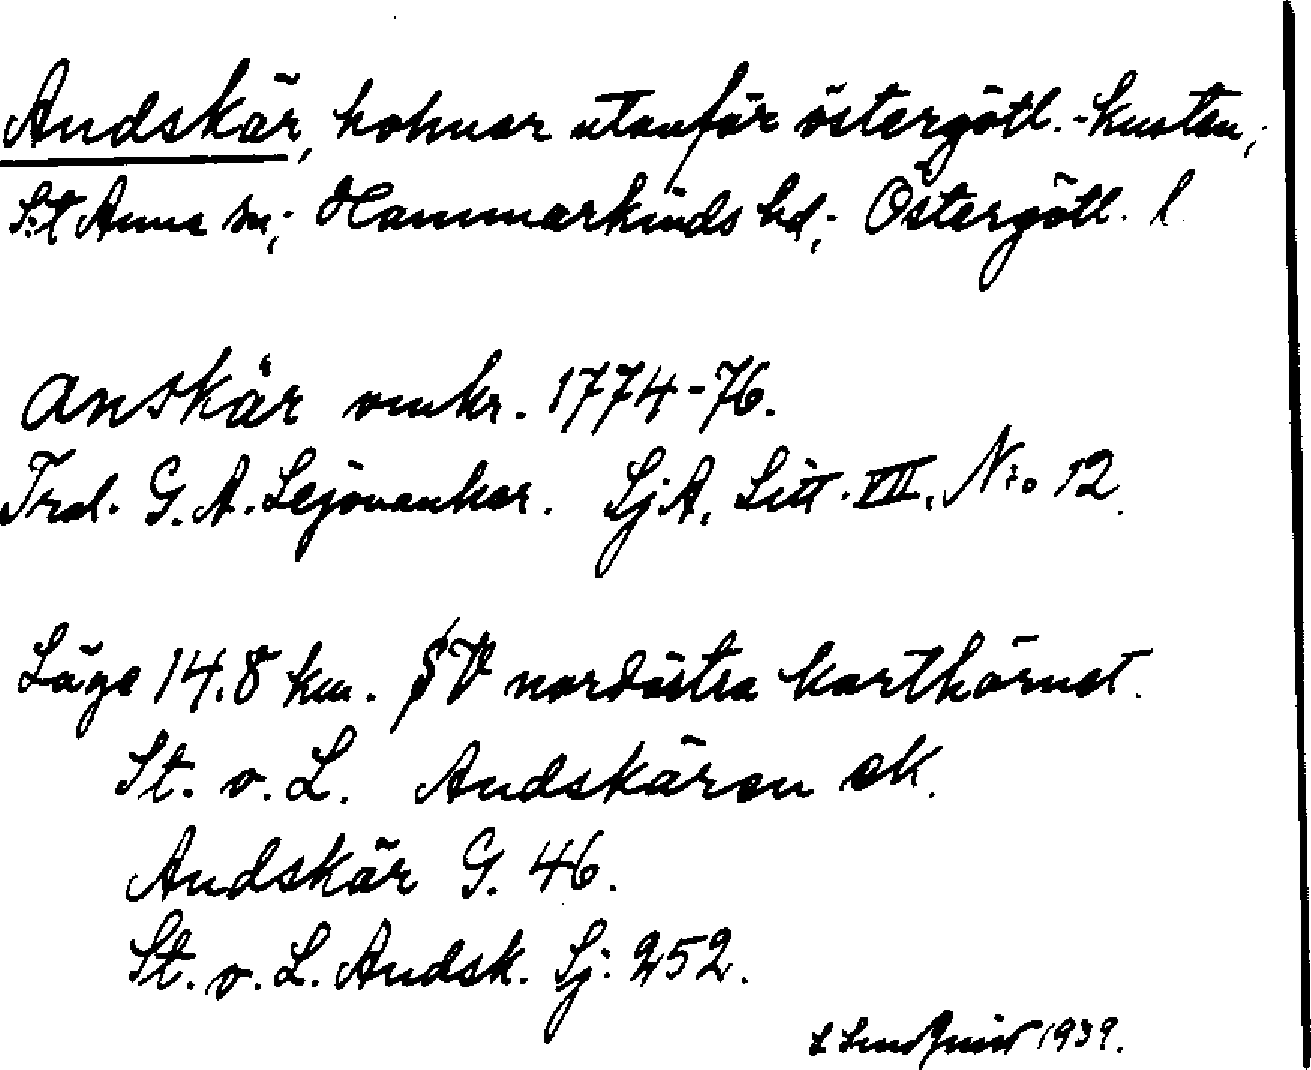 Andskär, holmar utanför östergötl.-kusten,
S:t Anna sn, Hammarkinds hd, Östergötl. l
Anskär omkr. 1774-76.
Trol. G. A. Lejonanker. SjA, Litt. VII, N:o 12.
Läge 14.8 km. SV nordöstra karthörnet.
St. o. L. Andskären ek.
Andskär G. 46.
St. o. L. Andsk. Sj: 252.
1939.